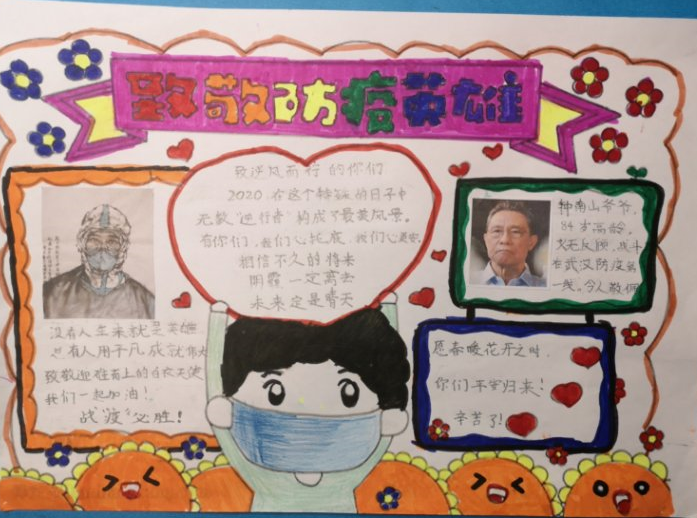 致敬防疫英雄
致逆风而行的你们
2020在这个特殊的日子中
无数"逆行者"构成了最美风景。
有你们,我们心托底,我们心更安.
相信不久的将来
阴霾一定离去
未来定是晴天
没有人生来就是英雄
总有人用平凡成就伟大
致敬迎难而上的白衣天使
我们一起加油!
战"疫"必胜!
钟南山爷爷,
84岁高龄,
义无反顾,战斗
在武汉防疫第
一线。令人敬佩
愿春暖花开之时,
你们平安归来!
辛苦了!